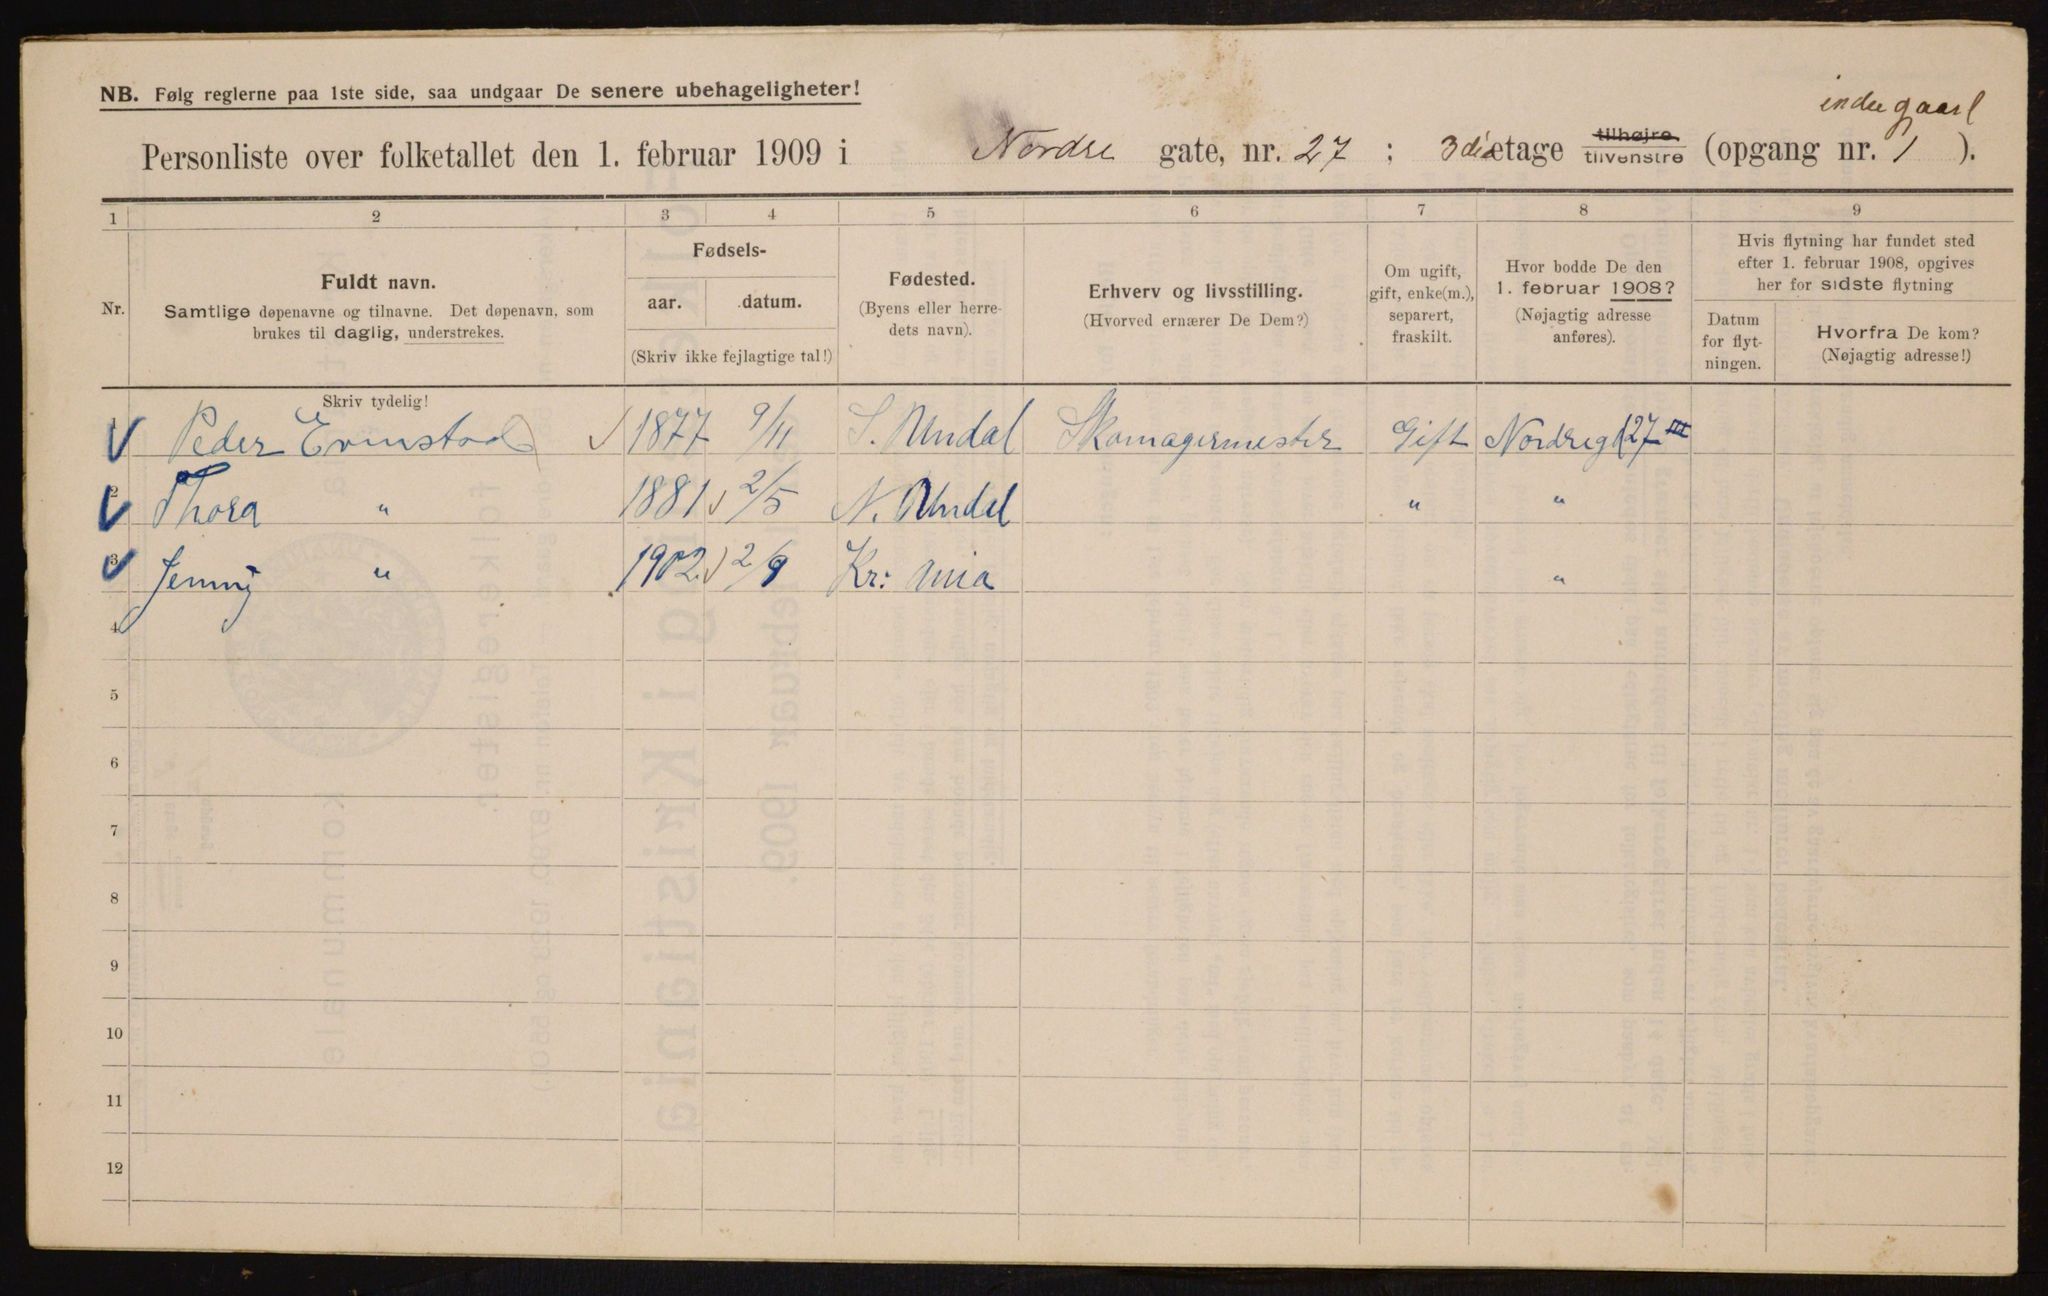 NB. Følg reglerne paa 1ste side, saa undgaar De senere ubehageligheter!
indre gaard
Personliste over folketallet den 1. februar 1909 i Nordre gate, nr. 27 ; 3die etage tilhøjre tilvenstre (opgang nr. 1 ).
1 2 3 4 5 6 7 8 9
Nr.
Fuldt navn.
Samtlige døpenavne og tilnavne. Det døpenavn, som
brukes til daglig, understrekes.
Fødsels-
aar. datum.
(Skriv ikke fejlagtige tal!)
Fødested.
(Byens eller herre-
dets navn).
Erhverv og livsstilling.
(Hvorved ernærer De Dem?)
Om ugift,
gift, enke(m.),
separert,
fraskilt.
Hvor bodde De den
1. februar 1908?
(Nøjagtig adresse
anføres).
Hvis flytning har fundet sted
efter 1. februar 1908, opgives
her for sidste flytning
Datum
for flyt-
ningen.
Hvorfra De kom?
(Nøjagtig adresse!)
Skriv tydelig!
1 Peder Evinstad 1877 9/11 S. Undal Skomagermester Gift Nordregt 27 III
2 Thora " 1881 2/5 N. Undal " "
3 Jenny " 1902 2/9 Kr: ania "
4
5
6
7
8
9
10
11
12